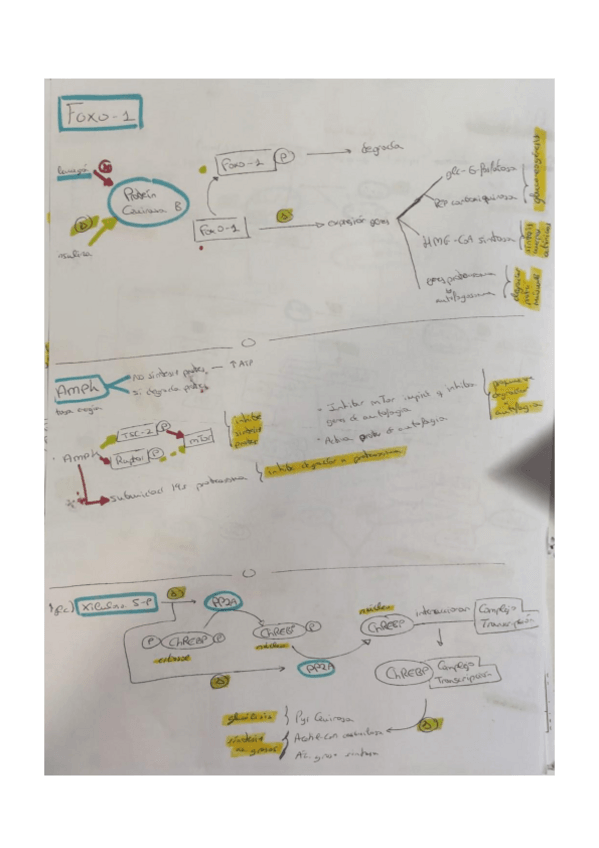 FoxO-1
FoxO-1 P
degrada
Protein
Quinasa B
insulina
FoxO-1
expresión genes
glc-6-fosfatasa
PEP carboxiquinasa
HMG-CoA sintasa
gluconeogénesis
síntesis
cuerpos
AmpK
No síntesis protes → ↑ATP
Si degrada protes
baja energía
AmpK
TSC-2 P
Raptor P
mTor
inhibe
síntesis
protes
• Inhibir mTor impide q inhiba
genes de autofagia
• Activa de autofagia
autofagia
Subunidad 19s proteasoma
inhibe degradación x proteasoma
Xilulosa 5-P
PP2A
P ChREBP P
citosol
ChREBP P
núcleo
PP2A
núcleo
ChREBP
interaccionar
Complejo
Transcripción
ChREBP
Complejo
Transcripción
glucólisis
Pyr Quinasa
síntesis
de grasas
Acetil-CoA carboxilasa
Ac. graso sintasa